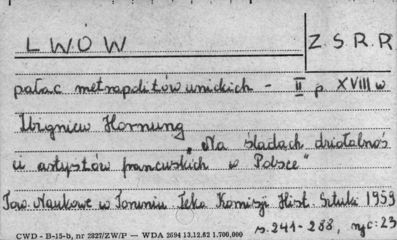 LWÓW
Z.S.R.R
pałac metropolitów unickich - II p. XVIII w
Zbigniew Hornung
"Na śladach działalnoś
ci artystów francuskich w Polsce"
Tow. Naukowe w Toruniu Teka Komisji Hist. Sztuki 1959
s. 241-288, ryc: 23
CWD - B-15-b, nr 2827/ZW/P — WDA 2694 13.12.62 1.700.000